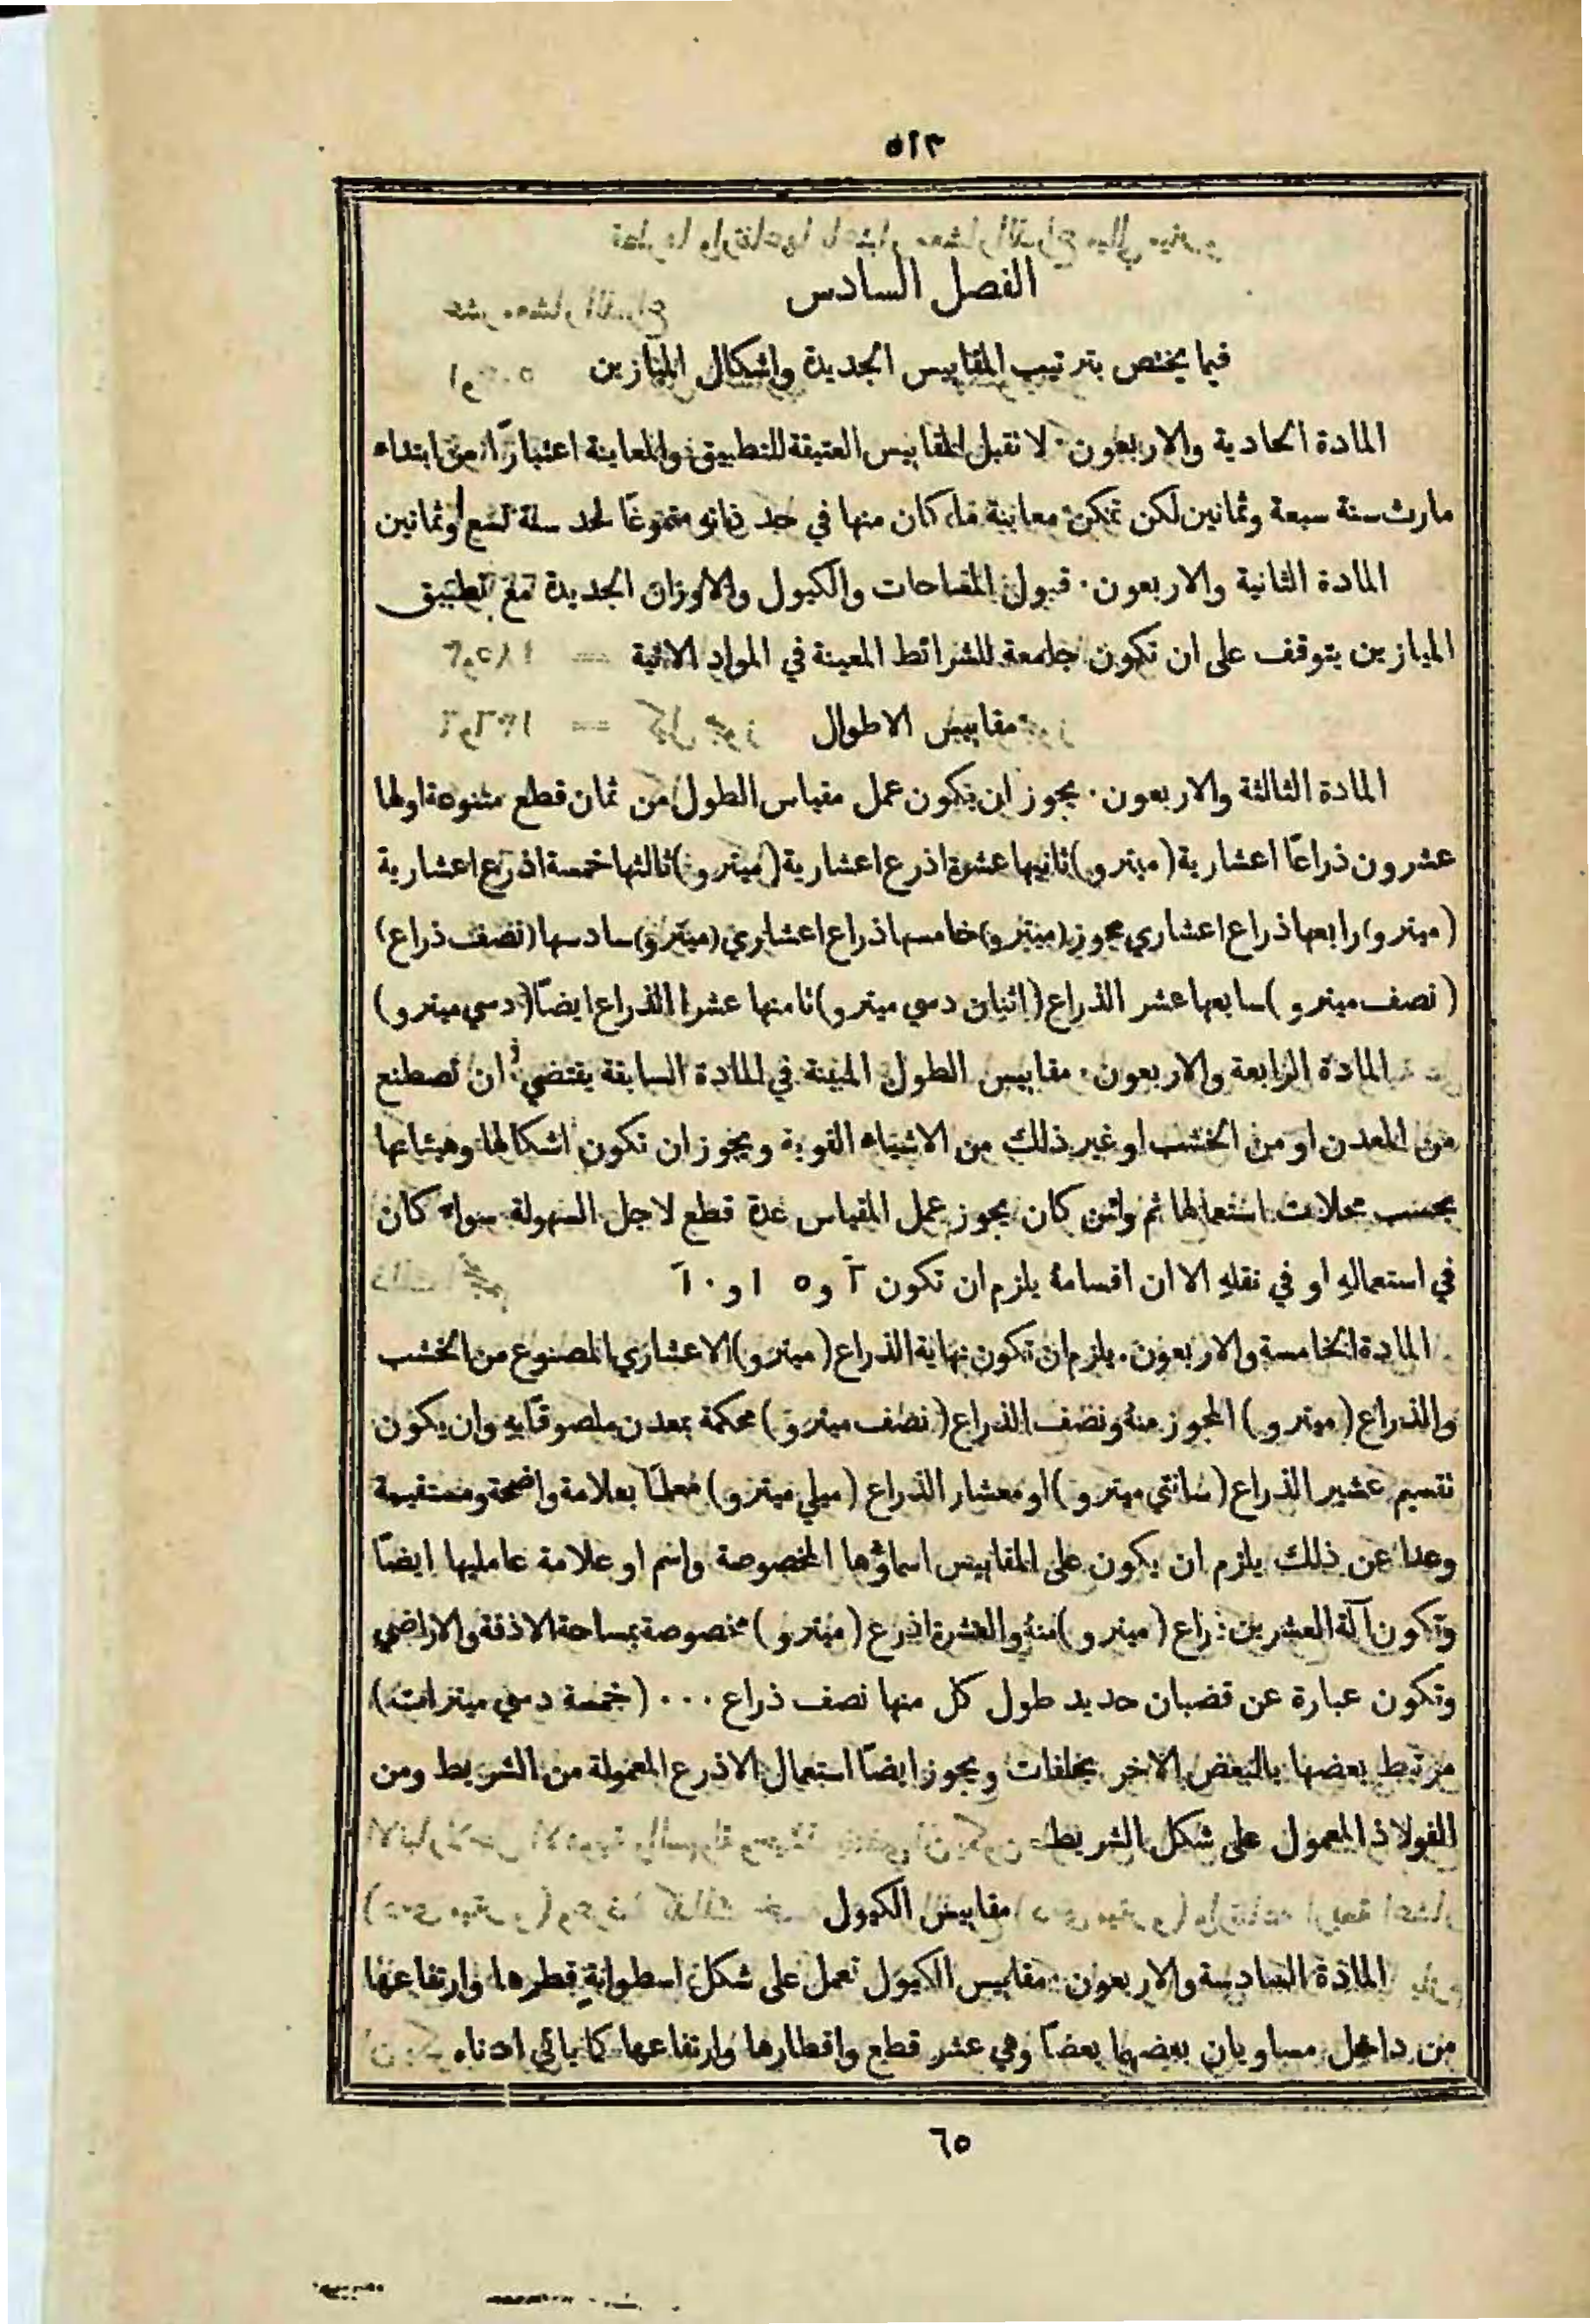 ٥١٣
الفصل السادس
فيما يختص بترتيب المقاييس الجديدة واشكال الميازين
المادة الحادية والاربعون · لا نقبل المقاييس العتيقة للتطبيق والمعاينة اعتبارًا من ابتداء
مارث سنة سبعة وثمانين لكن تمكن معاينة ما كان منها في حد ذاته متنوعًا لحد سنة تسع وثمانين
المادة الثانية والاربعون · قبول المساحات والكيول والاوزان الجديدة مع تطبيق
الميازين يتوقف على ان تكون جامعة للشرائط المعينة في المواد الاتية
مقاييس الاطوال
المادة الثالثة والاربعون · يجوز ان يكون عمل مقياس الطول من ثمان قطع متنوعة اولها
عشرون ذراعًا اعشارية (ميترو) ثانيها عشرة اذرع اعشارية (ميترو) ثالثها خمسة اذرع اعشارية
(ميترو) رابعها ذراع اعشاري مجوز (ميترو) خامسها ذراع اعشاري (ميترو) سادسها (نصف ذراع)
(نصف ميترو) سابعها عشر الذراع (اثنان دسي ميترو) ثامنها عشرا الذراع ايضًا (دسي ميترو)
المادة الرابعة والاربعون · مقاييس الطول المبينة في المادة السابقة يقتضي ان تصطنع
من المعدن او من الخشب او غير ذلك من الاشياء القوية ويجوز ان تكون اشكالها وهيئاتها
بحسب محلات استعمالها ثم وائن كان يجوز عمل المقياس عدة قطع لاجل السهولة سواء كان
في استعماله او في نقله الا ان اقسامهُ يلزم ان تكون ٢ و ٥ ١ و ١٠
المادة الخامسة والاربعون · يلزم ان تكون نهاية الذراع (ميترو) الاعشاري المصنوع من الخشب
والذراع (ميترو) المجوز منهُ ونصف الذراع (نصف ميترو) محكمة بمعدن ملصوقًا به وان يكون
تقسيم عشير الذراع (سانتي ميترو) او معشار الذراع (ميلي ميترو) معلمًا بعلامة واضحة ومستقيمة
وعدا عن ذلك يلزم ان يكون على المقاييس اسماؤها المخصوصة واسم او علامة عامليها ايضًا
وتكون آلة العشرين ذراع (ميترو) منهُ والعشرة اذرع (ميترو) مخصوصة بمساحة الاذقة والاراضي
وتكون عبارة عن قضبان حديد طول كل منها نصف ذراع ... (خمسة دسي ميترات)
مرتبط بعضها بالبعض الاخر بحلقات ويجوز ايضًا استعمال الاذرع المعمولة من الشريط ومن
الفولاذ المعمول على شكل الشريط
مقاييس الكيول
المادة السادسة والاربعون · مقاييس الكيول تعمل على شكل اسطوانةٍ قطرها وارتفاعها
من داخل مساويان بعضهما بعضًا وهي عشر قطع واقطارها وارتفاعها كما ياتي ادناه
٦٥